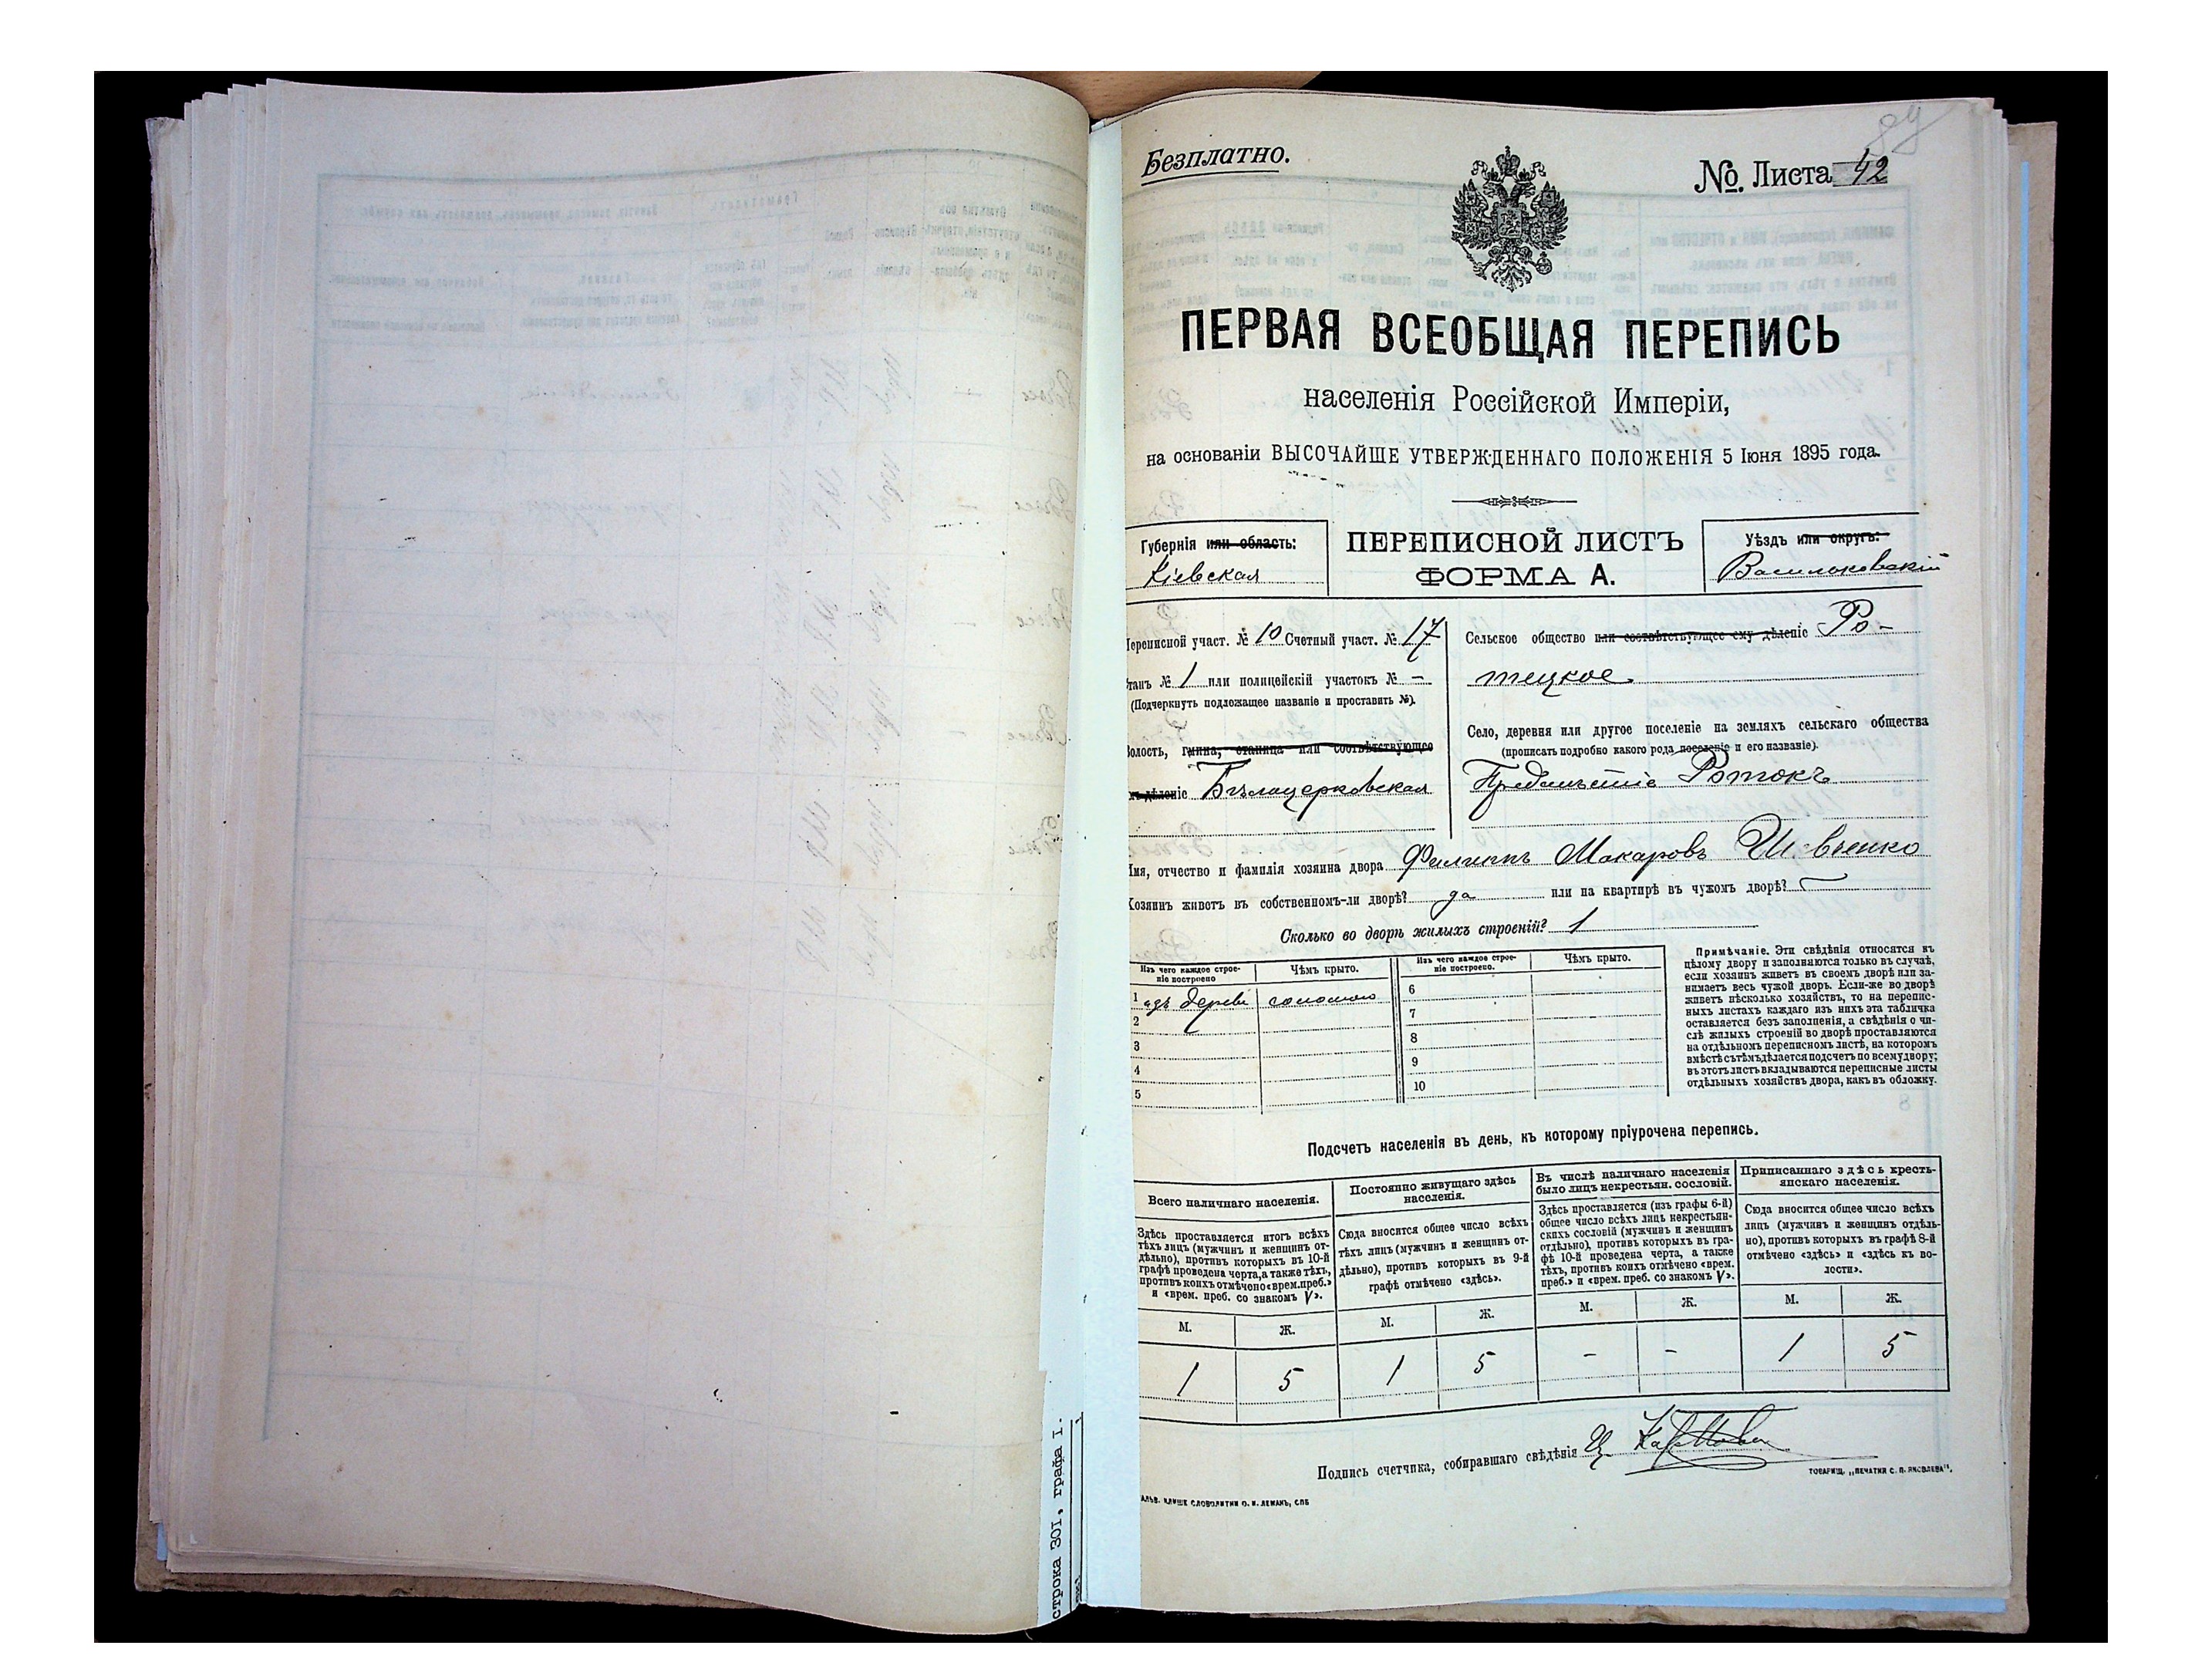 84
Безплатно.
№ Листа 42
ПЕРВАЯ ВСЕОБЩАЯ ПЕРЕПИСЬ
населенія Россійской Имперіи,
на основаніи ВЫСОЧАЙШЕ УТВЕРЖДЕННАГО ПОЛОЖЕНІЯ 5 Іюня 1895 года.
Губернія или область:
Кіевская
ПЕРЕПИСНОЙ ЛИСТЪ
ФОРМА А.
Уѣздъ или округъ:
Васильковскій
Переписной участ. № 10 Счетный участ. № 17
Станъ № 1 или полицейскій участокъ № —
(Подчеркнуть подлежащее названіе и проставить №).
Волость, гмина, станица или соотвѣтствующее
дѣленіе Бѣлоцерковская
Сельское общество или соотвѣтствующее ему дѣленіе Ро-
тецкое
Село, деревня или другое поселеніе на земляхъ сельскаго общества
(прописать подробно какого рода поселеніе и его названіе).
Предмѣстіе Ротокъ
Имя, отчество и фамилія хозяина двора Филиппъ Макаровъ Шевченко
Хозяинъ живетъ въ собственномъ-ли дворѣ? да или на квартирѣ въ чужомъ дворѣ? —
Сколько во дворѣ жилыхъ строеній? 1
Изъ чего каждое строе-
ніе построено
Чѣмъ крыто.
1 изъ дерева соломою
2
3
4
5
Изъ чего каждое строе-
ніе построено.
Чѣмъ крыто.
6
7
8
9
10
Примѣчаніе. Эти свѣдѣнія относятся къ
цѣлому двору и заполняются только въ случаѣ,
если хозяинъ живетъ въ своемъ дворѣ или за-
нимаетъ весь чужой дворъ. Если-же во дворѣ
живетъ нѣсколько хозяйствъ, то на перепис-
ныхъ листахъ каждаго изъ нихъ эта табличка
оставляется безъ заполненія, а свѣдѣнія о чи-
слѣ жилыхъ строеній во дворѣ проставляются
на отдѣльномъ переписномъ листѣ, на которомъ
вмѣстѣ съ тѣмъ дѣлается подсчетъ по всему двору;
въ этотъ листъ вкладываются переписные листы
отдѣльныхъ хозяйствъ двора, какъ въ обложку.
Подсчетъ населенія въ день, къ которому пріурочена перепись.
Всего наличнаго населенія.
Здѣсь проставляется итогъ всѣхъ
тѣхъ лицъ (мужчинъ и женщинъ от-
дѣльно), противъ которыхъ въ 10-й
графѣ проведена черта, а также тѣхъ,
противъ коихъ отмѣчено «врем. преб.»
и «врем. преб. со знакомъ V».
М. Ж.
1 5
Постоянно живущаго здѣсь
населенія.
Сюда вносится общее число всѣхъ
тѣхъ лицъ (мужчинъ и женщинъ от-
дѣльно), противъ которыхъ въ 9-й
графѣ отмѣчено «здѣсь».
М. Ж.
1 5
Въ числѣ наличнаго населенія
было лицъ некрестьян. сословій.
Здѣсь проставляется (изъ графы 6-й)
общее число всѣхъ лицъ некрестьян-
скихъ сословій (мужчинъ и женщинъ
отдѣльно), противъ которыхъ въ гра-
фѣ 10-й проведена черта, а также
тѣхъ, противъ коихъ отмѣчено «врем.
преб.» и «врем. преб. со знакомъ V».
М. Ж.
- -
Приписаннаго здѣсь кресть-
янскаго населенія.
Сюда вносится общее число всѣхъ
лицъ (мужчинъ и женщинъ отдѣль-
но), противъ которыхъ въ графѣ 8-й
отмѣчено «здѣсь» и «здѣсь къ во-
лости».
М. Ж.
1 5
Подпись счетчика, собиравшаго свѣдѣнія
ТОВАРИЩ. „ПЕЧАТНИ С. П. ЯКОВЛЕВА".
ГАЛЬВ. КЛИШЕ СЛОВОЛИТНИ О. И. ЛЕМАНЪ, СПБ
строка 301, графа 1.